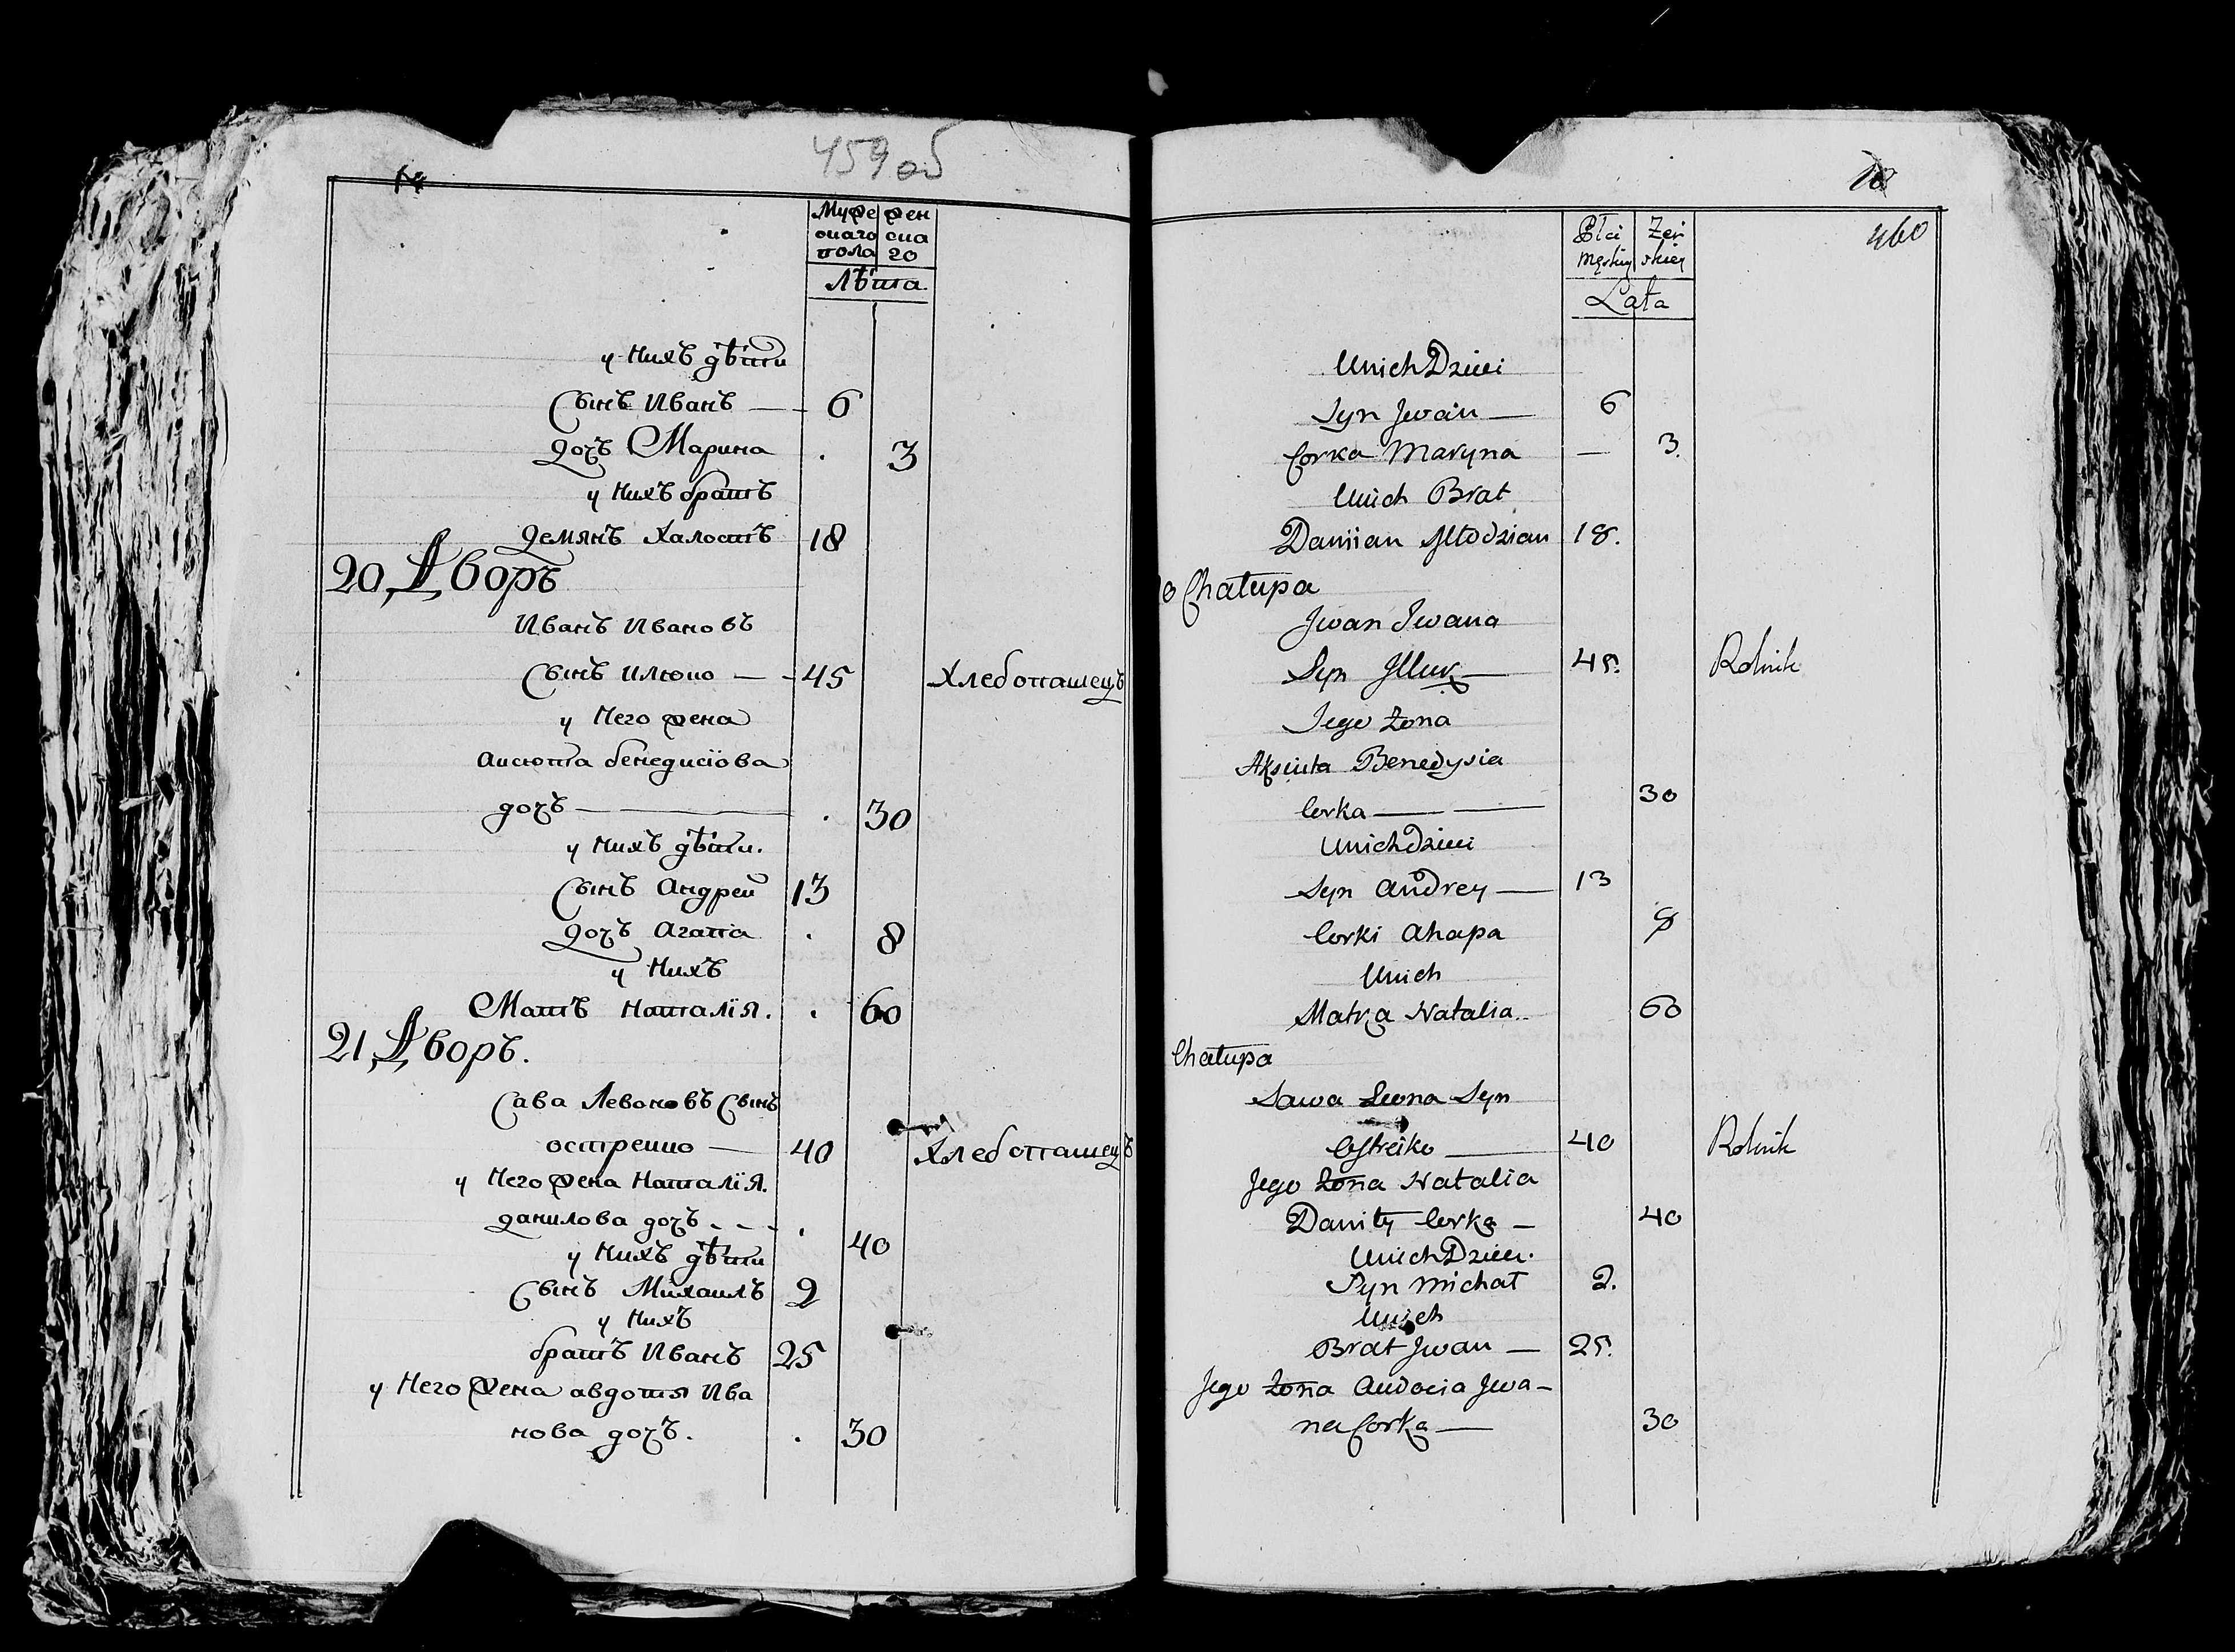 459 об
Муже жен
скаго ска
пола го
Лѣта
у нихъ дѣти
Сынъ Иванъ — 6
Дочъ Марина . 3
у нихъ братъ
Демянъ Халостъ 18
20, Дворъ
Иванъ Ивановъ
Сынъ Илюко — 45 Хлебопашецъ
у него жена
Аксюта бенедисіова
дочъ — . 30
у нихъ дѣти.
Сынъ Андрей 13
Дочъ Агапа . 8
у нихъ
Матъ Наталія. . 60
21, Дворъ.
Сава Левоновъ Сынъ
острейко — 40 Хлебопашецъ
у него жена Наталія.
данилова дочъ - - - . 40
у нихъ дѣти
Сынъ Михаилъ 2
у нихъ
братъ Иванъ 25
у него жена авдотя Ива
нова дочъ. . 30
460
Płci Żeń
Męskiey skiey
Lata
Unich Dzieci
Syn Jwan — 6
Corka Maryna — 3.
Unich Brat
Damian Młodzian 18.
Chałupa
Jwan Jwana
Syn — 45. Rolnik
Jego Żona
Aksiuta Benedysia
Corka — — 30
Unich Dzieci
Syn Andrey — 13
Corki Ahapa 8
Unich
Matka Natalia.. 60
Chałupa
Sawa Leona Syn
Ostreiko — 40 Rolnik
Jego Żona Natalia
Daniły Corka — 40
Unich Dzieci.
Syn Michał 2.
Unich
Brat Jwan — 25.
Jego Żona Audocia Jwa-
na Corka — 30